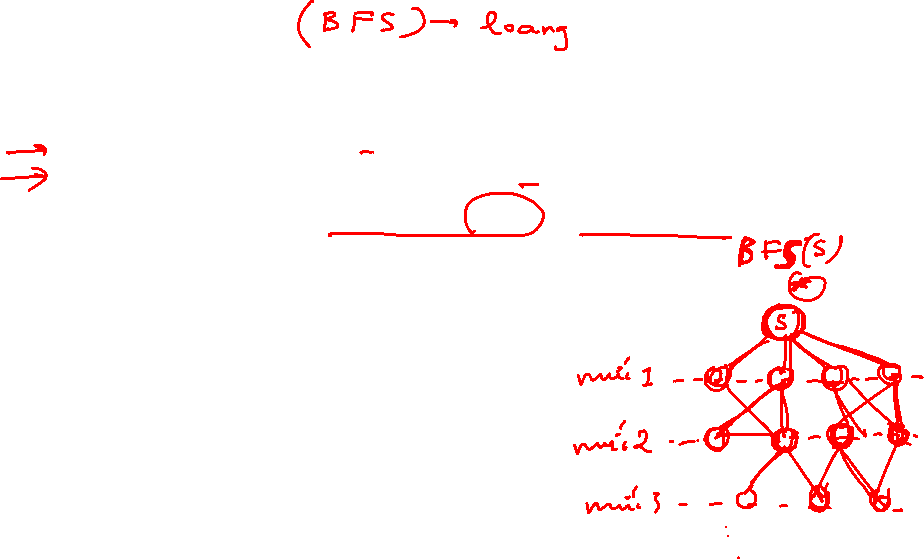 (BFS) → loang
BFS(S)
S
mức 1
mức 2
mức 3